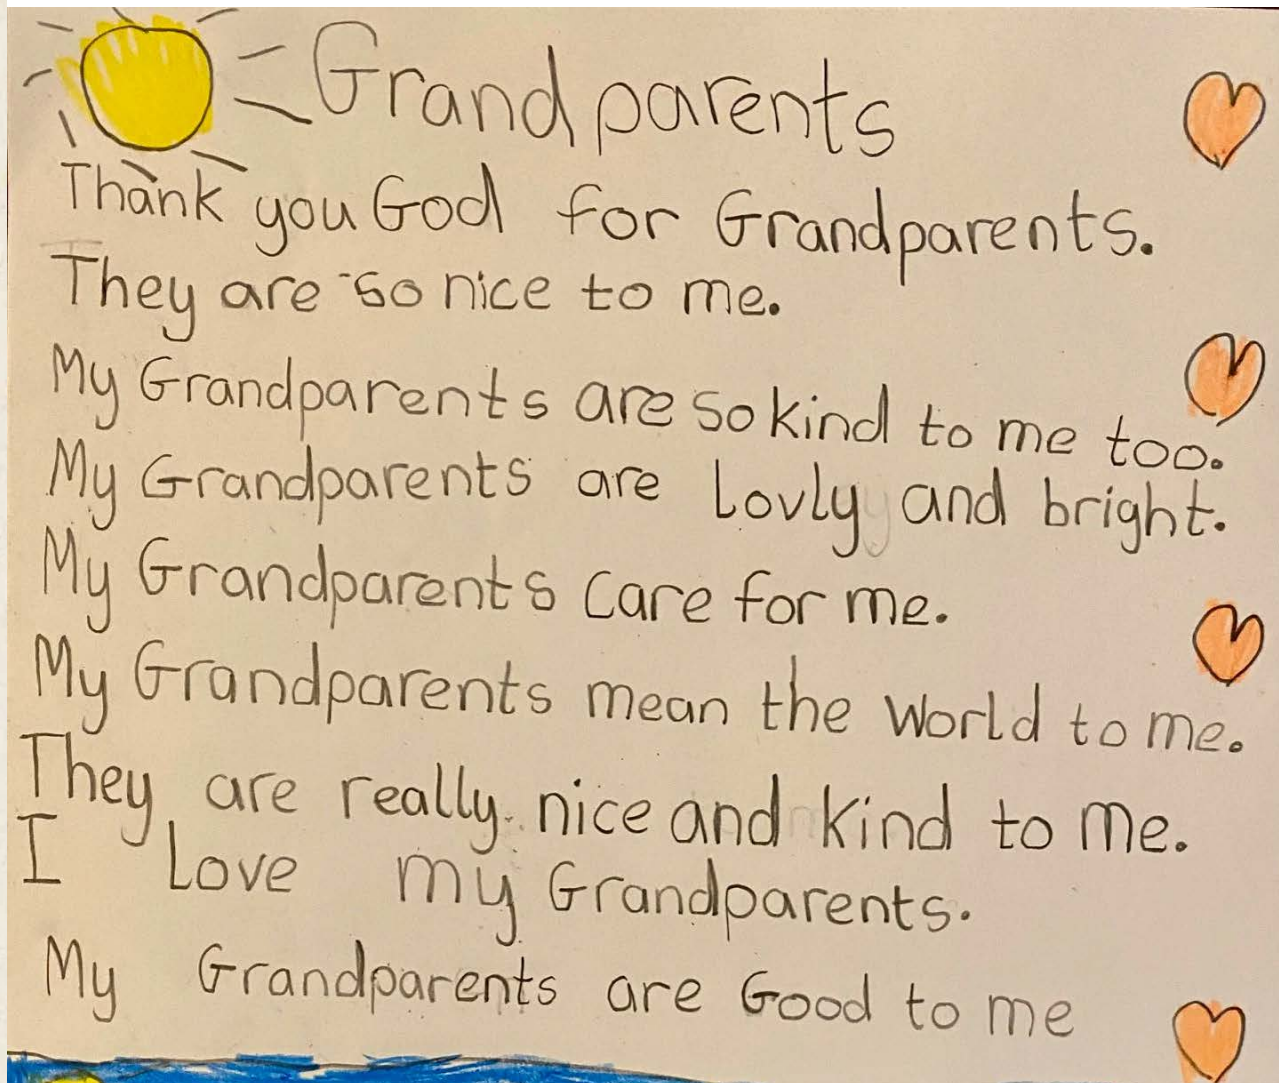 Grandparents
Thank you God for Grandparents.
They are so nice to me.
My Grandparents are so kind to me too.
My Grandparents are Lovly and bright.
My Grandparents care for me.
My Grandparents mean the World to me.
They are really nice and kind to me.
I Love my Grandparents.
My Grandparents are Good to me